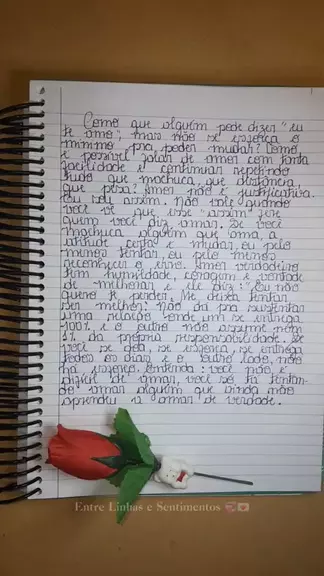 Como que alguém pode dizer "eu
te amo", mas não se esforça o
mínimo pra poder mudar? Como
é possível falar de amor com tanta
facilidade e continuar repetindo
tudo que machuca, que distância,
que pesa? Amor não é justificativa.
Eu sou assim. Não vale quando
você vê que esse "assim" fere
quem você diz amar. Se você
machuca alguém que ama, a
atitude certa é mudar, ou pelo
menos tentar, ou pelo menos
reconhecer o erro. Amor verdadeiro
tem humildade, coragem e vontade
de melhorar e ele diz: "Eu não
quero te perder. Me deixa tentar
ser melhor. Não dá pra sustentar
uma relação onde um se entrega
100% e o outro não assume nem
1% da própria responsabilidade. Se
você se doa, se esforça, se entrega
todos os dias e o outro lado, não
há esforço, entenda: você não é
difícil de amar, você só tá tentan-
do amar alguém que ainda não
aprendeu o amor de verdade.
Entre Linhas e Sentimentos